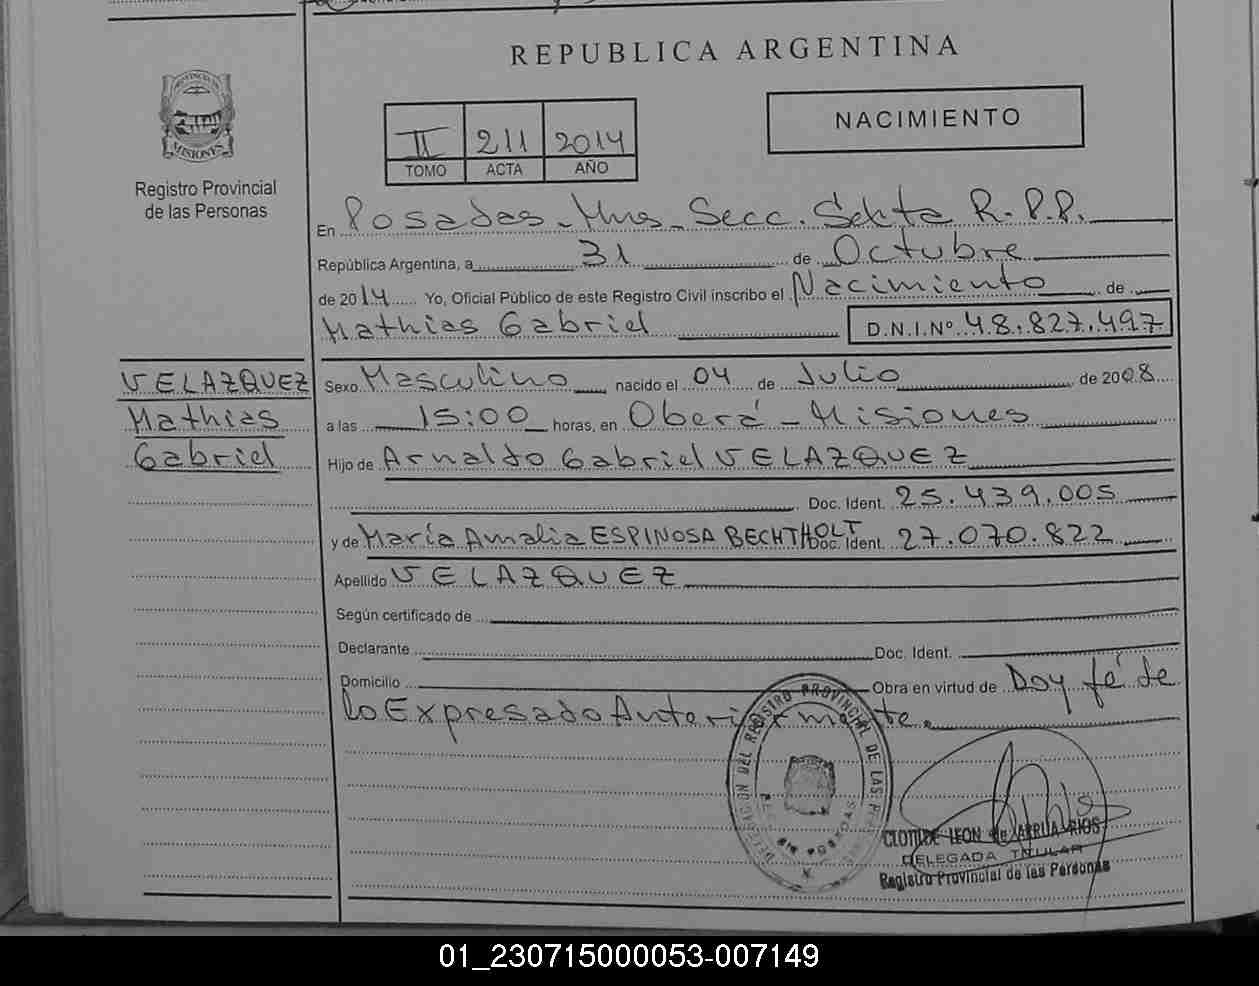 REPUBLICA ARGENTINA
PROVINCIA DE
MISIONES
Registro Provincial
de las Personas
II 211 2014
TOMO ACTA AÑO
NACIMIENTO
En Posadas - Mnes - Secc. Sexta R.P.P.
República Argentina, a 31 de Octubre
de 2014 Yo, Oficial Público de este Registro Civil inscribo el Nacimiento de
Mathias Gabriel D.N.I.Nº 48.827.497
VELAZQUEZ
Mathias
Gabriel
Sexo Masculino nacido el 04 de Julio de 2008
a las 15:00 horas, en Oberá - Misiones
Hijo de Arnaldo Gabriel VELAZQUEZ
Doc. Ident. 25.439.005
y de María Amalia ESPINOSA BECHTHOLT Doc. Ident. 27.070.822
Apellido VELAZQUEZ
Según certificado de
Declarante Doc. Ident.
Domicilio Obra en virtud de Doy fé de
lo Expresado Anteriormente.
DELEGACION DEL REGISTRO PROVINCIAL DE LAS
CLOTILDE LEON de ARRUA RIOS
DELEGADA TITULAR
Registro Provincial de las Personas
01_230715000053-007149